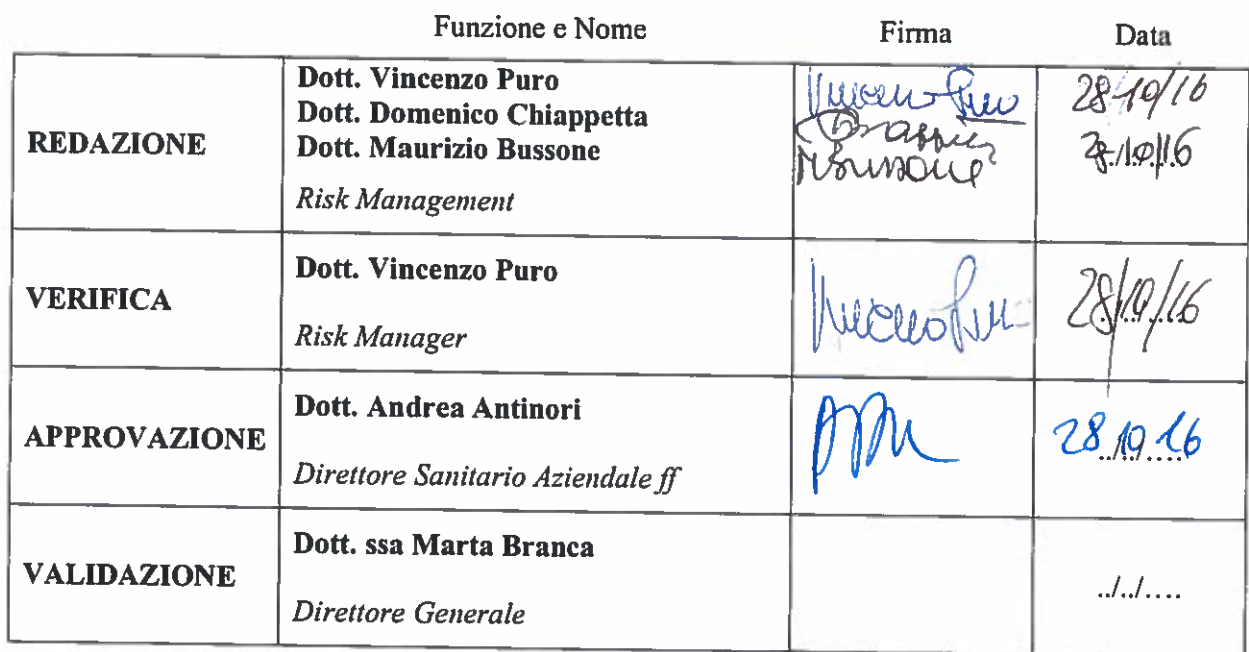 Funzione e Nome Firma Data
REDAZIONE
Dott. Vincenzo Puro
Dott. Domenico Chiappetta
Dott. Maurizio Bussone
Risk Management
Vincenzo Puro
MBussone
28/10/16
28/10/16
VERIFICA
Dott. Vincenzo Puro
Risk Manager
Vincenzo Puro
28/10/16
APPROVAZIONE
Dott. Andrea Antinori
Direttore Sanitario Aziendale ff
28/10/16
VALIDAZIONE
Dott. ssa Marta Branca
Direttore Generale
../../....